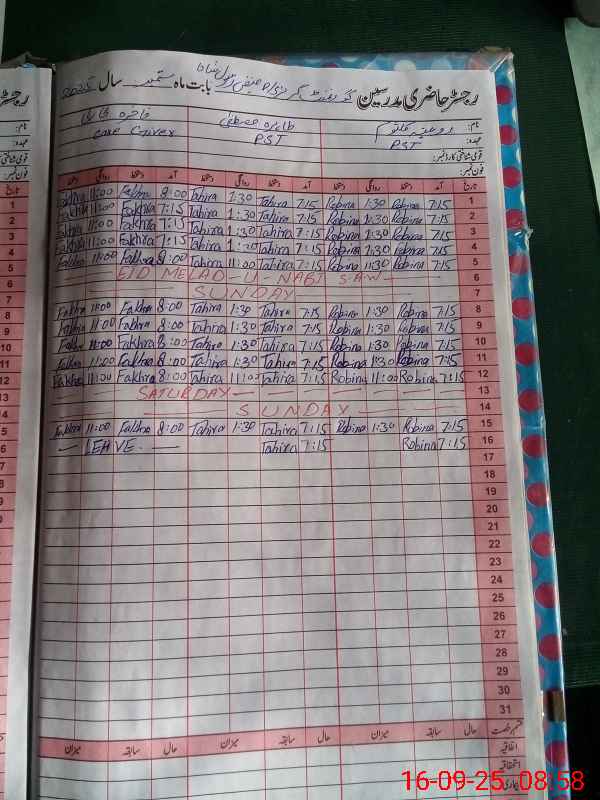 رجسٹر حاضری مدرسین گورنمنٹ گرلز بابت ماہ ستمبر سال 2025
نام: طاہرہ مصطفیٰ
عہدہ: PST PST Care Giver
قومی شناختی کارڈ نمبر:
فون نمبر:
تاریخ آمد دستخط روانگی دستخط آمد دستخط روانگی دستخط آمد دستخط روانگی دستخط
Fakhra 11:00 Fakhra 8:00 Tahira 1:30 Tahira 7:15 Robina 1:30 Robina 7:15 1
Fakhra 11:00 Fakhra 7:15 Tahira 1:30 Tahira 7:15 Robina 1:30 Robina 7:15 2
Fakhra 11:00 Fakhra 7:15 Tahira 1:30 Tahira 7:15 Robina 1:30 Robina 7:15 3
Fakhra 11:00 Fakhra 7:15 Tahira 1:30 Tahira 7:15 Robina 1:30 Robina 7:15 4
Fakhra 11:00 Fakhra 8:00 Tahira 11:00 Tahira 7:15 Robina 11:30 Robina 7:15 5
EID MELAD - U - NABI SAW 6
SUNDAY 7
Fakhra 11:00 Fakhra 8:00 Tahira 1:30 Tahira 7:15 Robina 1:30 Robina 7:15 8
Fakhra 11:00 Fakhra 8:00 Tahira 1:30 Tahira 7:15 Robina 1:30 Robina 7:15 9
Fakhra 11:00 Fakhra 8:00 Tahira 1:30 Tahira 7:15 Robina 1:30 Robina 7:15 10
Fakhra 11:00 Fakhra 8:00 Tahira 1:30 Tahira 7:15 Robina 1:30 Robina 7:15 11
Fakhra 11:00 Fakhra 8:00 Tahira 11:00 Tahira 7:15 Robina 11:00 Robina 7:15 12
SATURDAY 13
SUNDAY 14
Fakhra 11:00 Fakhra 8:00 Tahira 1:30 Tahira 7:15 Robina 1:30 Robina 7:15 15
LEAVE Tahira 7:15 Robina 7:15 16
17
18
19
20
21
22
23
24
25
26
27
28
29
30
31
حال سابقہ میزان حال سابقہ میزان حال سابقہ میزان
اتفاقیہ
استحقاقیہ
بیماری
16-09-25 08:58